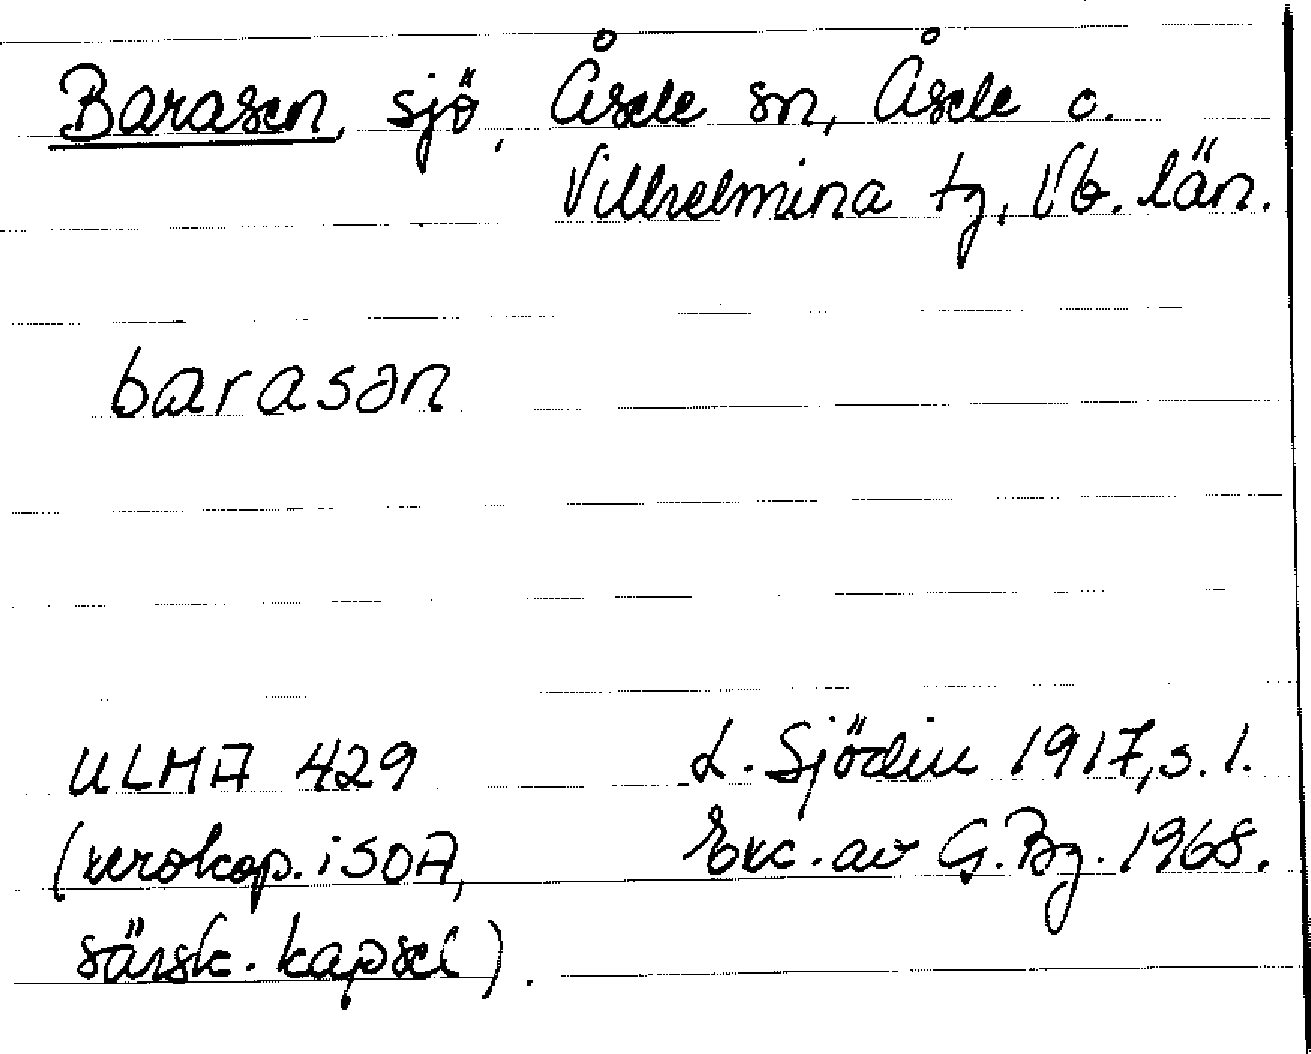 Barasen, sjö, Åsele sn, Åsele o.
Vilhelmina tg, Vb. län.
barasən
ULMA 429
(xerokop. i SOA,
särsk. kapsel).
L. Sjödin 1917, s. 1.
Exc. av G. Bg. 1968.